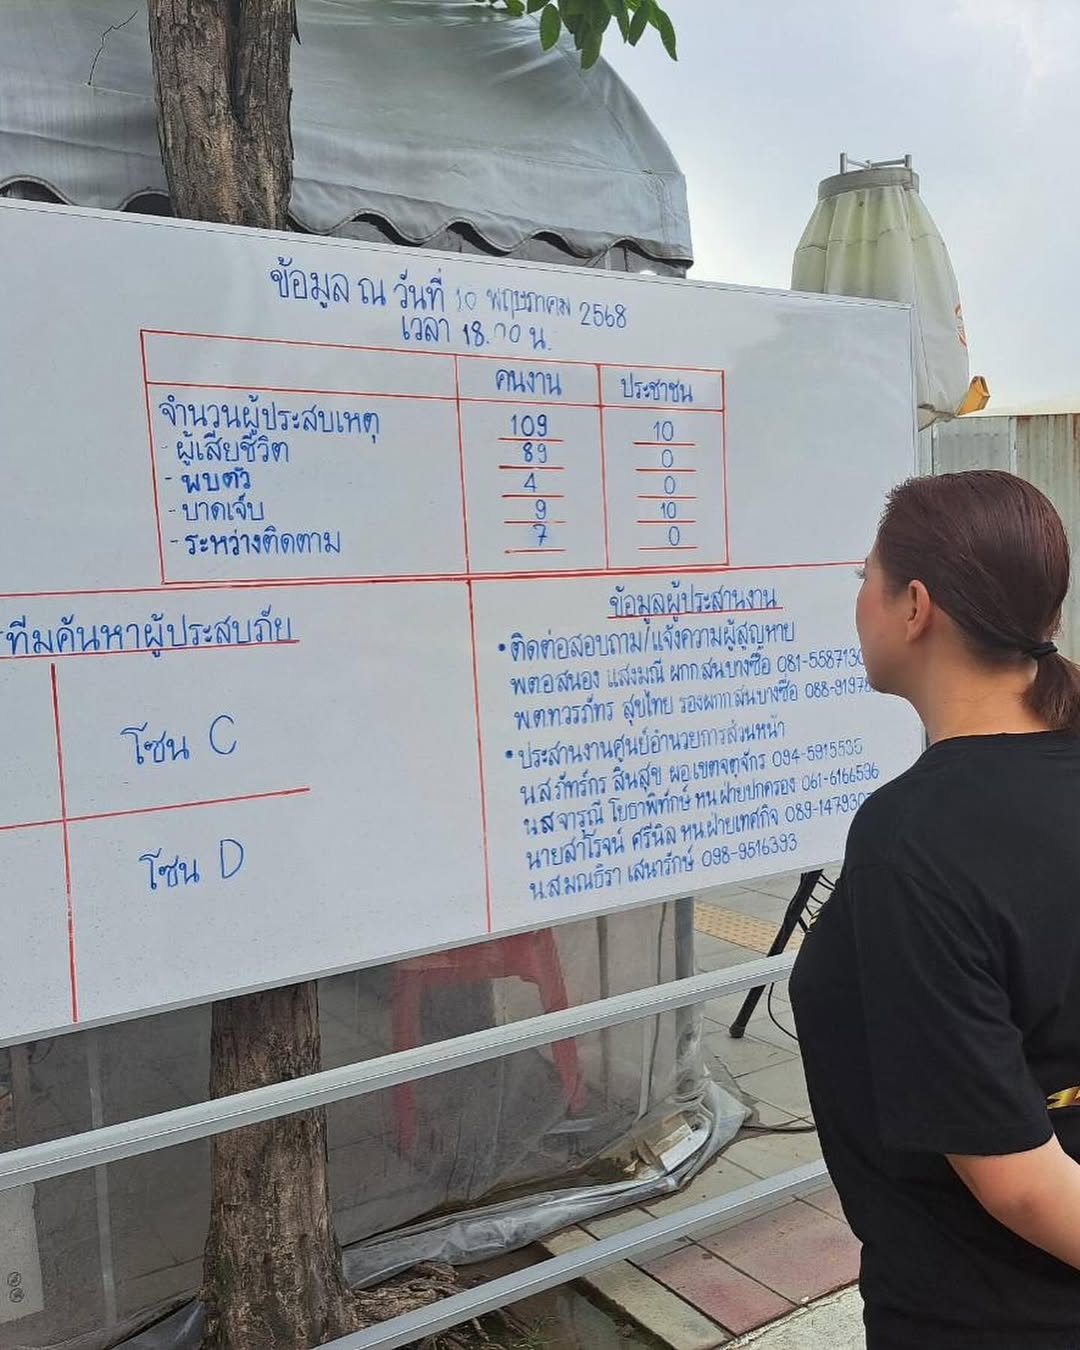 ข้อมูล ณ วันที่ 10 พฤษภาคม 2568
เวลา 18.00 น.
คนงาน ประชาชน
จำนวนผู้ประสบเหตุ 109 10
- ผู้เสียชีวิต 89 0
- พบตัว 4 0
- บาดเจ็บ 9 10
- ระหว่างติดตาม 7 0
ทีมค้นหาผู้ประสบภัย
โซน C
โซน D
ข้อมูลผู้ประสานงาน
• ติดต่อสอบถาม/แจ้งความผู้สูญหาย
พตอสนอง แสงมณี ผกก.สน.บางซื่อ 081-558713
พตทวรภัทร สุขไทย รองผกก.สน.บางซื่อ 088-9197
• ประสานงานศูนย์อำนวยการส่วนหน้า
น.ส.ภัทร์กร สินสุข ผอ.เขตจตุจักร 094-5915535
น.ส.จารุณี โยธาพิทักษ์ หน.ฝ่ายปกครอง 061-6166536
นายสำโรจน์ ศรีนิล หน.ฝ่ายเทศกิจ 089-147930
น.ส.มณธิรา เสนารักษ์ 098-9516393